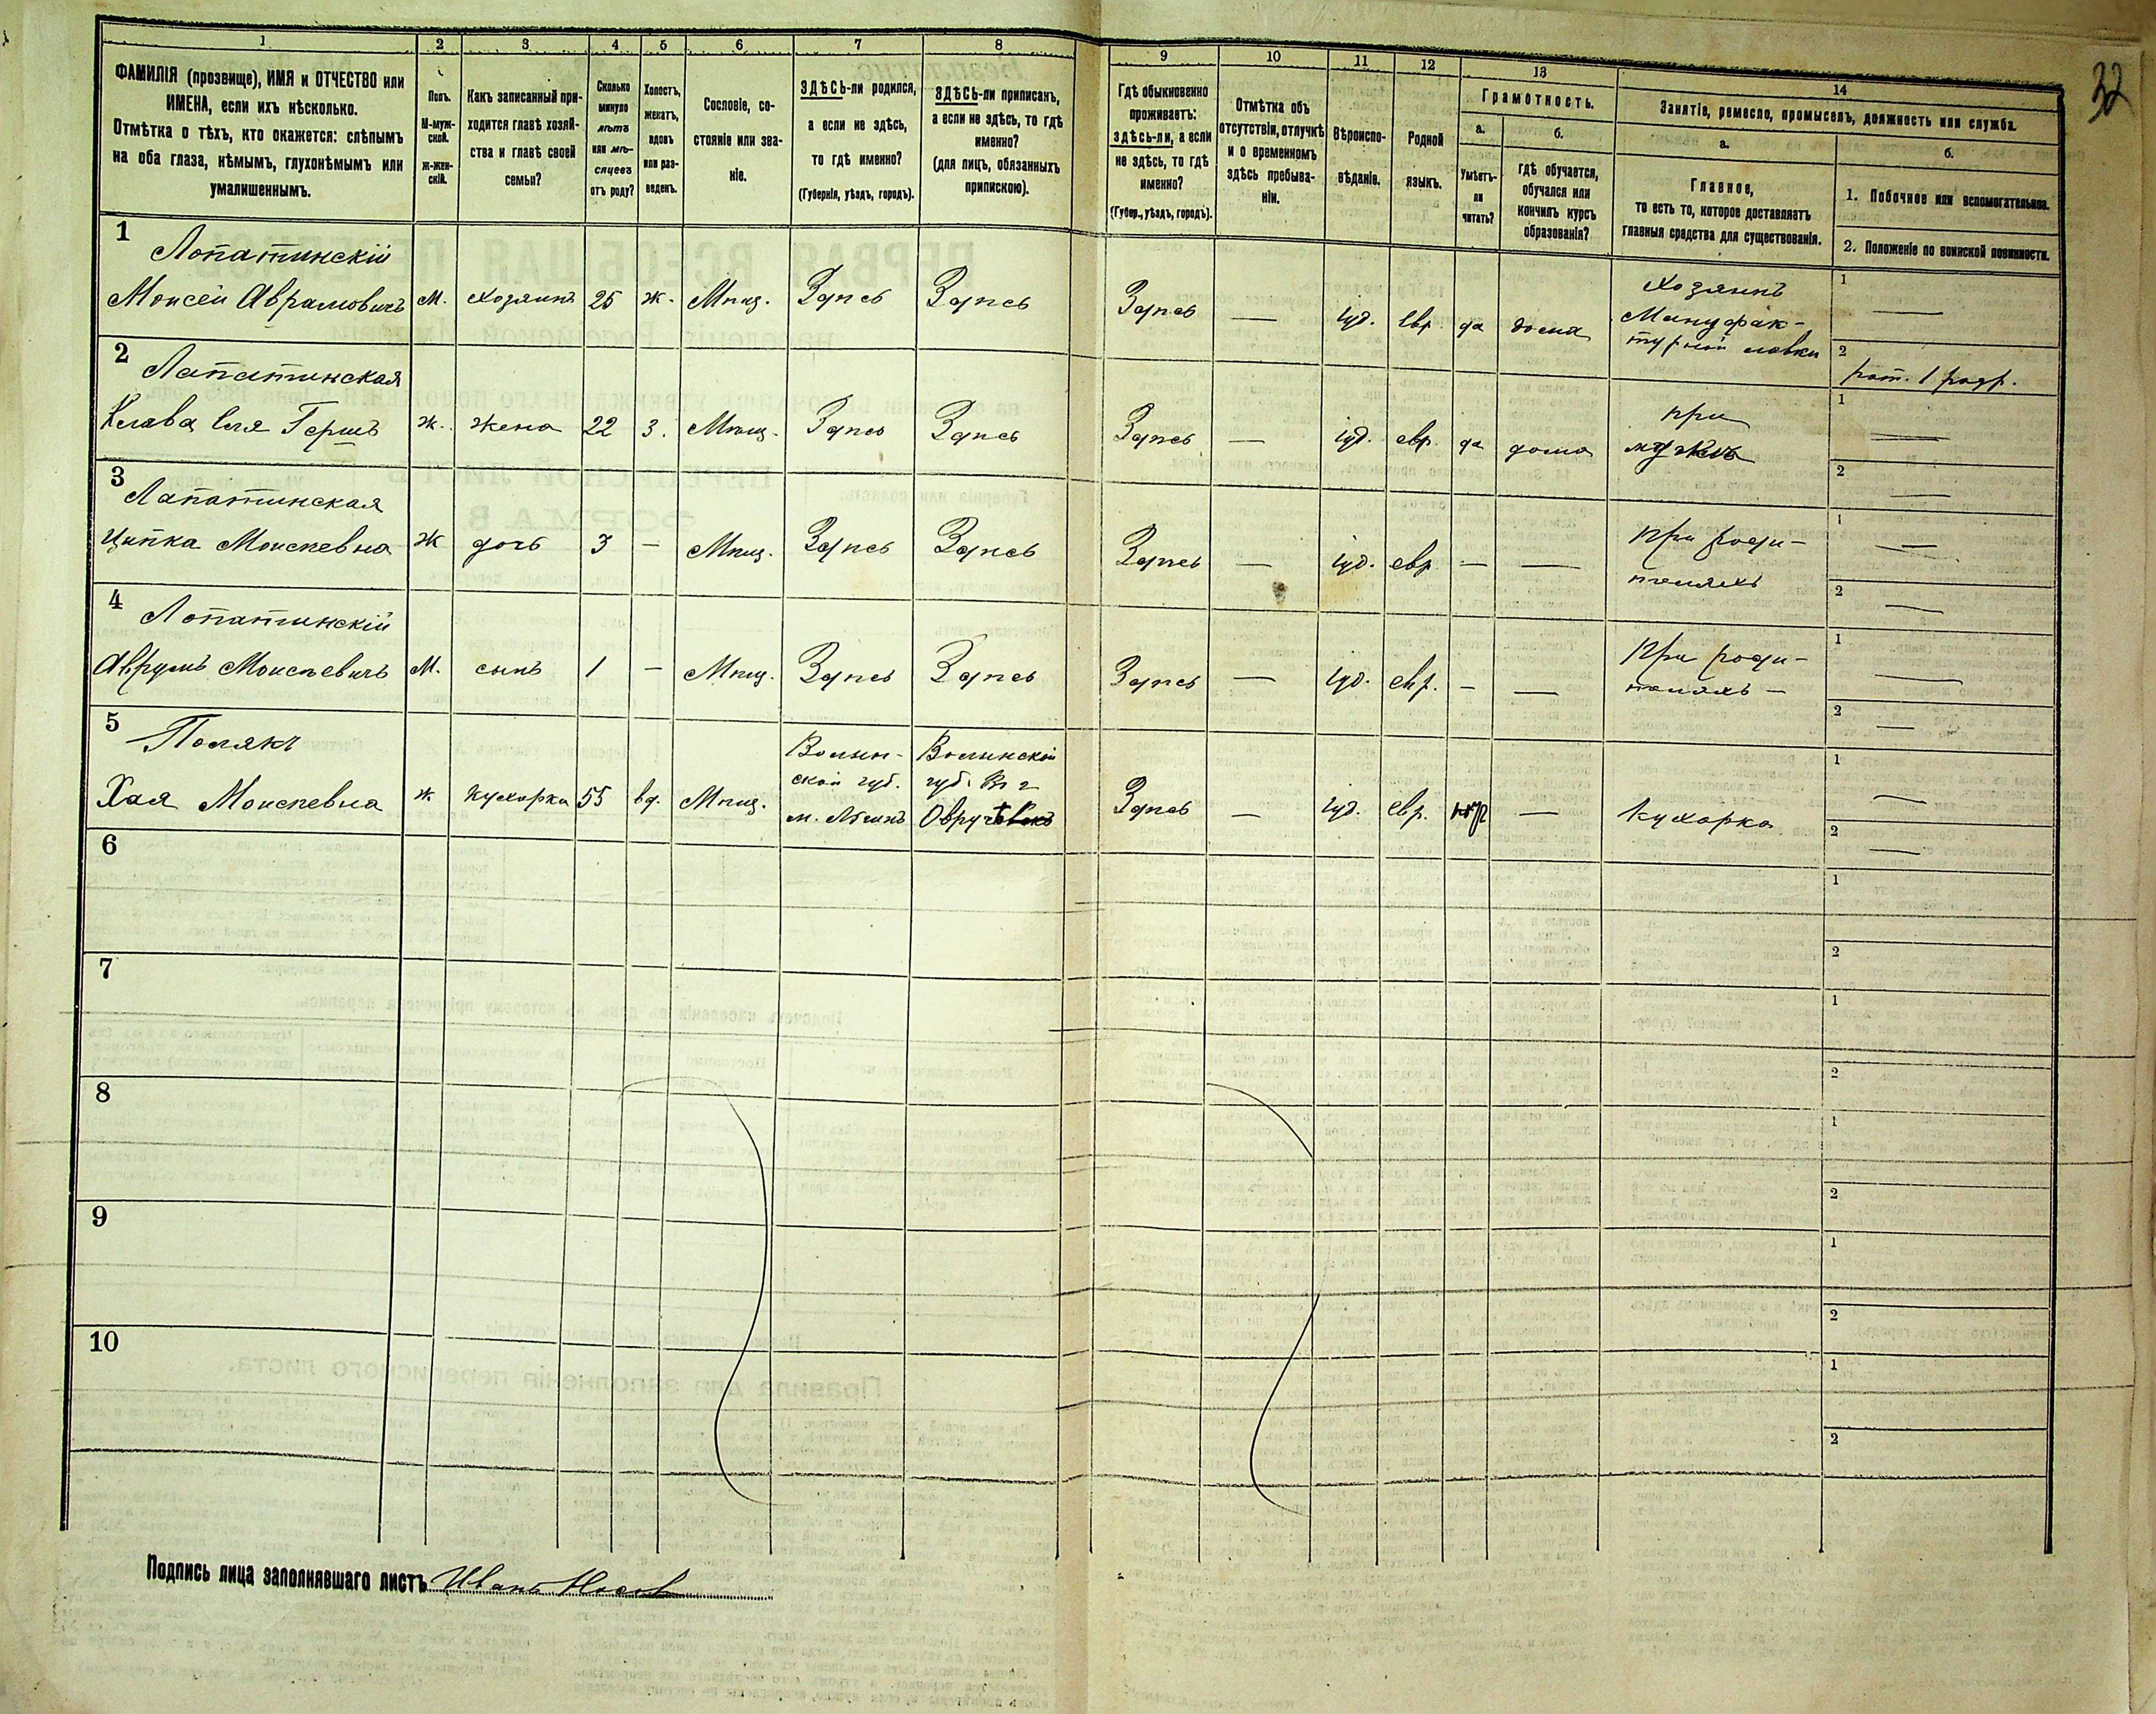 32
1 2 3 4 5 6 7 8 9 10 11 12 13 14
ФАМИЛІЯ (прозвище), ИМЯ и ОТЧЕСТВО или
ИМЕНА, если ихъ нѣсколько.
Отмѣтка о тѣхъ, кто окажется: слѣпымъ
на оба глаза, нѣмымъ, глухонѣмымъ или
умалишеннымъ.
Полъ.
М-муж-
ской.
ж-жен-
скій.
Какъ записанный при-
ходится главѣ хозяй-
ства и главѣ своей
семьи?
Сколько
минуло
лѣтъ
или мѣ-
сяцевъ
отъ роду?
Холостъ,
женатъ,
вдовъ
или раз-
веденъ.
Сословіе, со-
стояніе или зва-
ніе.
ЗДѢСЬ-ли родился,
а если не здѣсь,
то гдѣ именно?
(Губернія, уѣздъ, городъ).
ЗДѢСЬ-ли приписанъ,
а если не здѣсь, то гдѣ
именно?
(для лицъ, обязанныхъ
припискою).
Гдѣ обыкновенно
проживаетъ:
здѣсь-ли, а если
не здѣсь, то гдѣ
именно?
(Губер., уѣздъ, городъ).
Отмѣтка объ
отсутствіи, отлучкѣ
и о временномъ
здѣсь пребыва-
ніи.
Вѣроиспо-
вѣданіе.
Родной
языкъ.
Грамотность.
а.
Умѣетъ-
ли
читать?
б.
Гдѣ обучается,
обучался или
кончилъ курсъ
образованія?
Занятіе, ремесло, промыселъ, должность или служба.
а.
Главное,
то есть то, которое доставляетъ
главныя средства для существованія.
б.
1. Побочное или вспомогательное.
2. Положеніе по воинской повинности.
1 Лопатинскій
Моисей Аврамовичъ М. хозяинъ 25 ж. Мѣщ. Здѣсь Здѣсь Здѣсь — іуд. евр. да дома
Хозяинъ
Мануфак-
турной лавки
1 —
2 рат. 1 разр.
2 Лапатинская
Гершъ ж. жена 22 з. Мѣщ. Здѣсь Здѣсь Здѣсь — іуд. евр. да дома
при
мужѣ
1 —
2 —
3 Лапатинская
Ципка Моисѣевна ж дочь 3 — Мѣщ. Здѣсь Здѣсь Здѣсь — іуд. евр — —
При роди-
теляхъ
1 —
2 —
4 Лопатинскій
Аврумъ Моисѣевичъ М. сынъ 1 — Мѣщ. Здѣсь Здѣсь Здѣсь — іуд. евр. — —
При роди-
теляхъ —
1 —
2 —
5 Полякъ
Хая Моисѣевна ж кухарка 55 вд. Мѣщ.
Волын-
ской губ.
Волынской
губ.
Здѣсь — іуд. евр. — Кухарка
1 —
2 —
6 1
2
7 1
2
8 1
2
9 1
2
10 1
2
Подпись лица заполнявшаго листъ Иванъ Носовъ